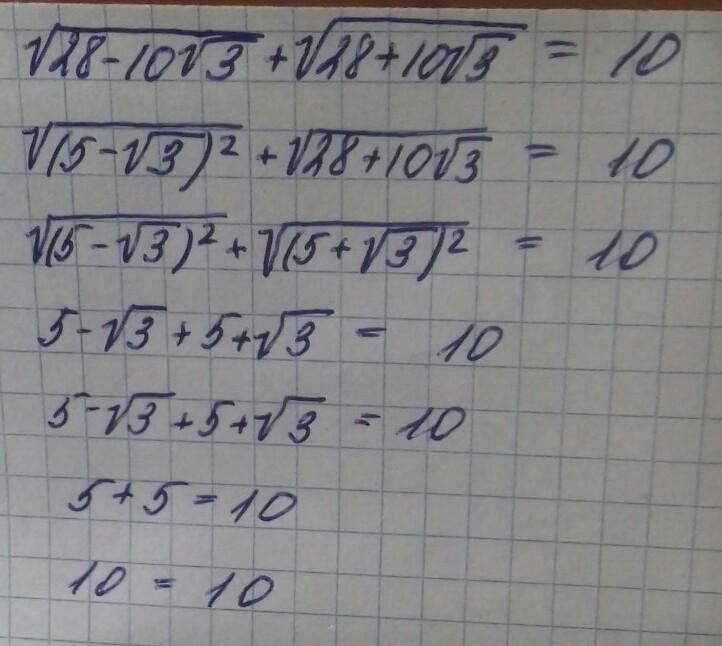 √(28-10√3) + √(28+10√3) = 10
√((5-√3)²) + √(28+10√3) = 10
√((5-√3)²) + √((5+√3)²) = 10
5-√3 + 5+√3 = 10
5-√3 + 5+√3 = 10
5+5=10
10 = 10